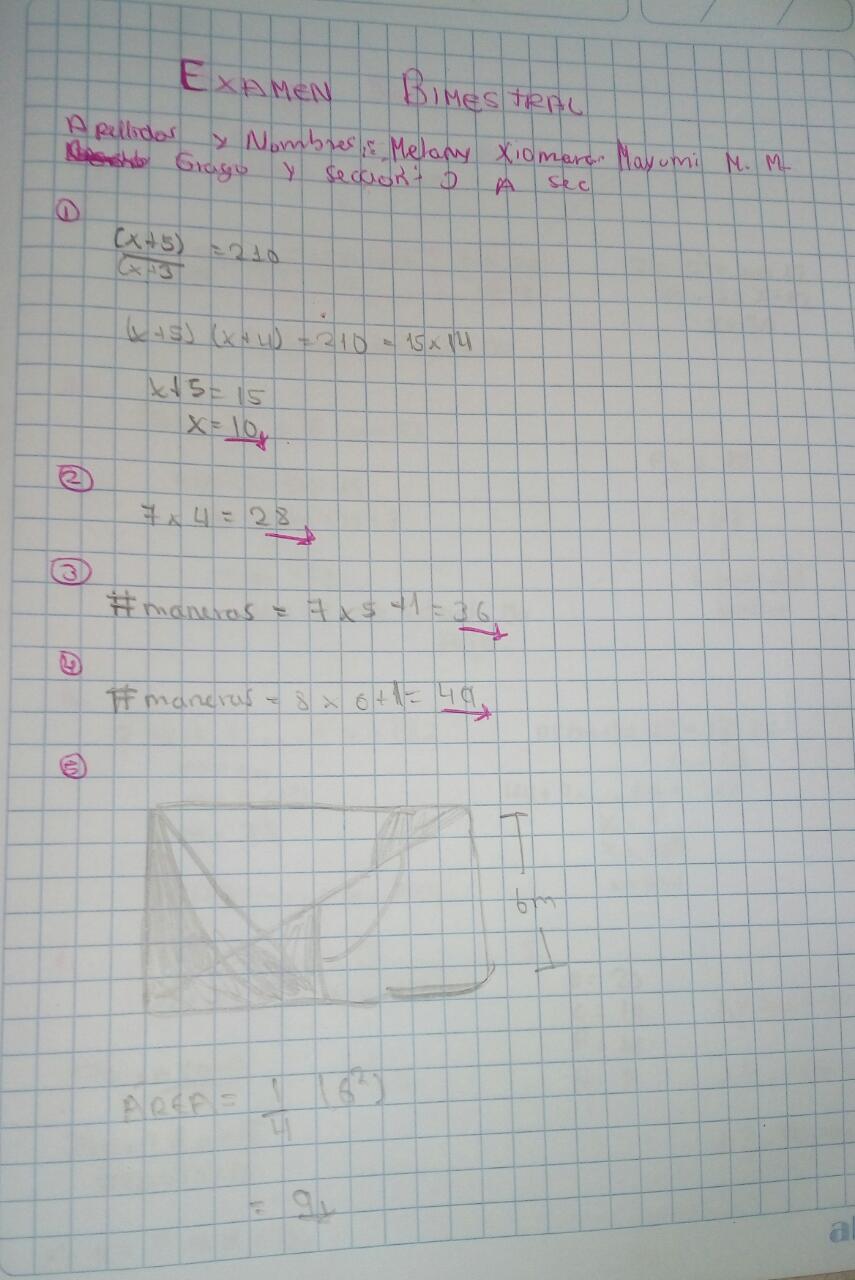 EXAMEN BIMESTRAL
Apellidos y Nombres: Melany Xiomara Mayumi M. M
Grago y seccion: A sec
①
(x+5)
(x+3 = 210
(x+5) (x+4) = 210 = 15x14
x+5 = 15
x = 10
②
7 x 4 = 28
③
#maneras = 7 x 5 +1 = 36
④
#maneras = 8 x 6+1 = 49
⑤
6m
AREA = 1/4 (6²)
= 9